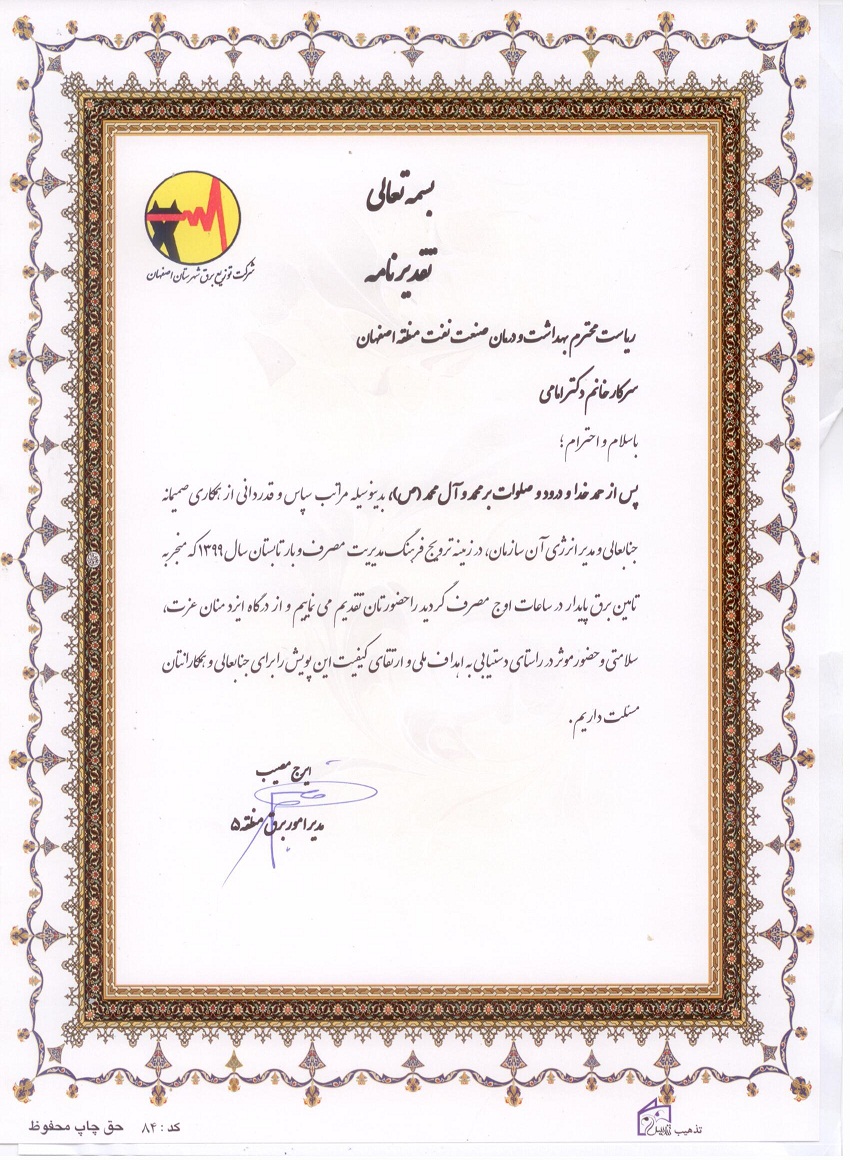 بسمه تعالی
شرکت توزیع برق شهرستان اصفهان
تقدیرنامه
ریاست محترم بهداشت و درمان صنعت نفت منطقه اصفهان
سرکار خانم دکتر امامی
باسلام و احترام ؛
پس از حمد خدا و درود و صلوات بر محمد و آل محمد (ص)، بدینوسیله مراتب سپاس و قدردانی از همکاری صمیمانه
جنابعالی و مدیر انرژی آن سازمان، در زمینه ترویج فرهنگ مدیریت مصرف و بار تابستان سال ۱۳۹۹ که منجر به
تامین برق پایدار در ساعات اوج مصرف گردید را حضورتان تقدیم می نماییم و از درگاه ایزد منان عزت،
سلامتی و حضور موثر در راستای دستیابی به اهداف ملی و ارتقای کیفیت این پویش را برای جنابعالی و همکارانتان
مسئلت داریم .
ایرج معیب
مدیر امور برق منطقه ۵
تذهیب
کد : ۸۴ حق چاپ محفوظ